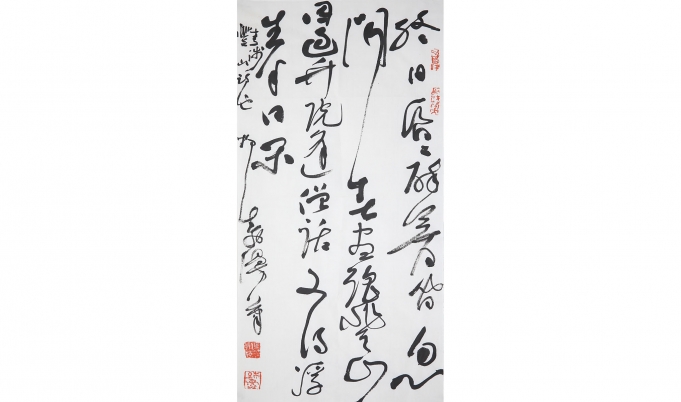 終日昏々醉夢間忽
聞春盡強登山
因過竹院逢僧話又得浮
生半日閑
李涉登山詩